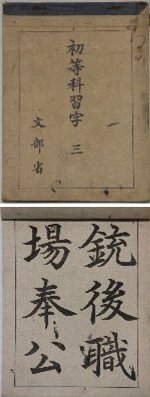 初等科習字 三
文部省
銃後職
場奉公